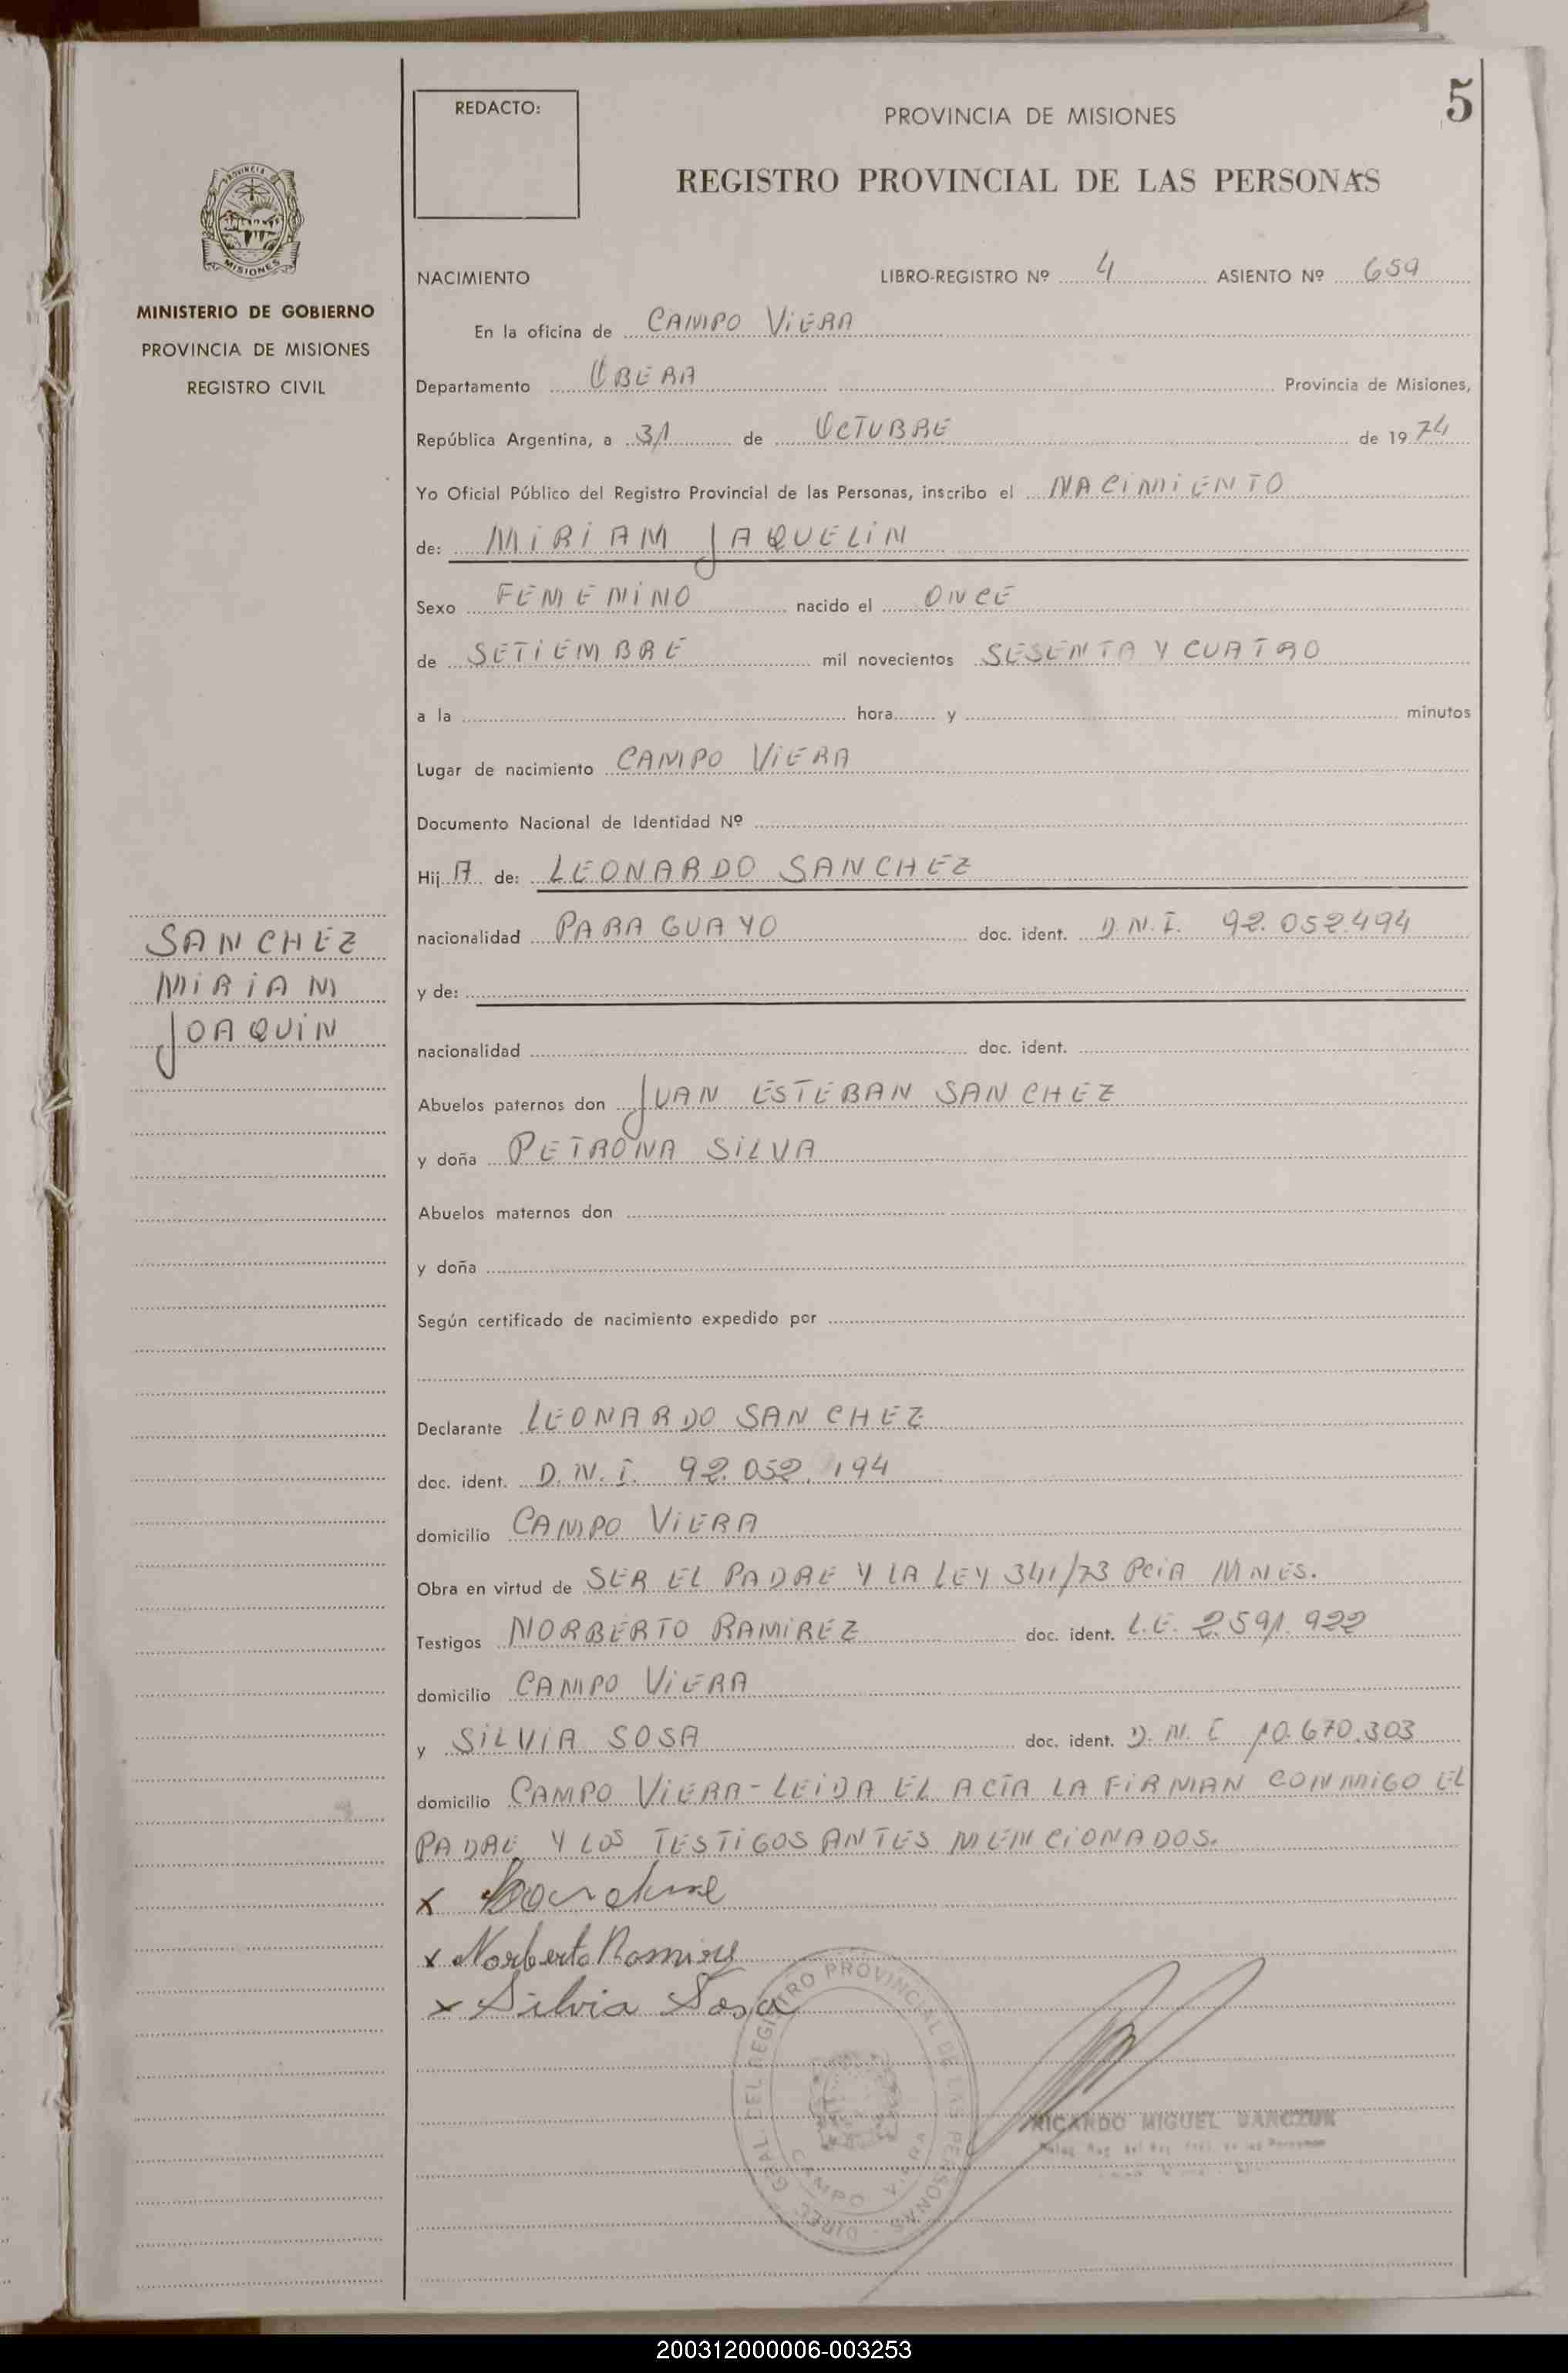 REDACTO:
PROVINCIA DE MISIONES
5
REGISTRO PROVINCIAL DE LAS PERSONAS
PROVINCIA
MISIONES
MINISTERIO DE GOBIERNO
PROVINCIA DE MISIONES
REGISTRO CIVIL
NACIMIENTO LIBRO-REGISTRO Nº 4 ASIENTO Nº 659
En la oficina de CAMPO ViERA
Departamento OBERA Provincia de Misiones,
República Argentina, a 31 de OCTUBRE de 1974
Yo Oficial Público del Registro Provincial de las Personas, inscribo el NACiMiENTO
de: MiRiAM JAQUELiN
Sexo FEMENiNO nacido el ONCE
de SETiEMBRE mil novecientos SESENTA Y CUATRO
a la hora y minutos
Lugar de nacimiento CAMPO ViERA
Documento Nacional de Identidad Nº
Hij A de: LEONARDO SANCHEZ
nacionalidad PARAGUAYO doc. ident. D.N.I. 92.052.494
y de:
nacionalidad doc. ident.
SANCHEZ
MiRiAM
JOAQUiN
Abuelos paternos don JUAN ESTEBAN SANCHEZ
y doña PETRONA SiLVA
Abuelos maternos don
y doña
Según certificado de nacimiento expedido por
Declarante LEONARDO SANCHEZ
doc. ident. D.N.I. 92.052.194
domicilio CAMPO ViERA
Obra en virtud de SER EL PADRE Y LA LEY 341/73 PCiA MNES.
Testigos NORBERTO RAMiREZ doc. ident. L.E. 2.591.922
domicilio CAMPO ViERA
y SiLViA SOSA doc. ident. D.N.I 10.670.303
domicilio CAMPO ViERA-LEiDA EL ACTA LA FiRMAN CONMiGO EL
PADRE Y LOS TESTiGOS ANTES MENCiONADOS.
x
x Norberto Ramirez
x Silvia Sosa
DIREC. GRAL. DEL REGISTRO PROVINCIAL DE LAS PERSONAS
CAMPO VIERA
RICARDO MIGUEL
200312000006-003253